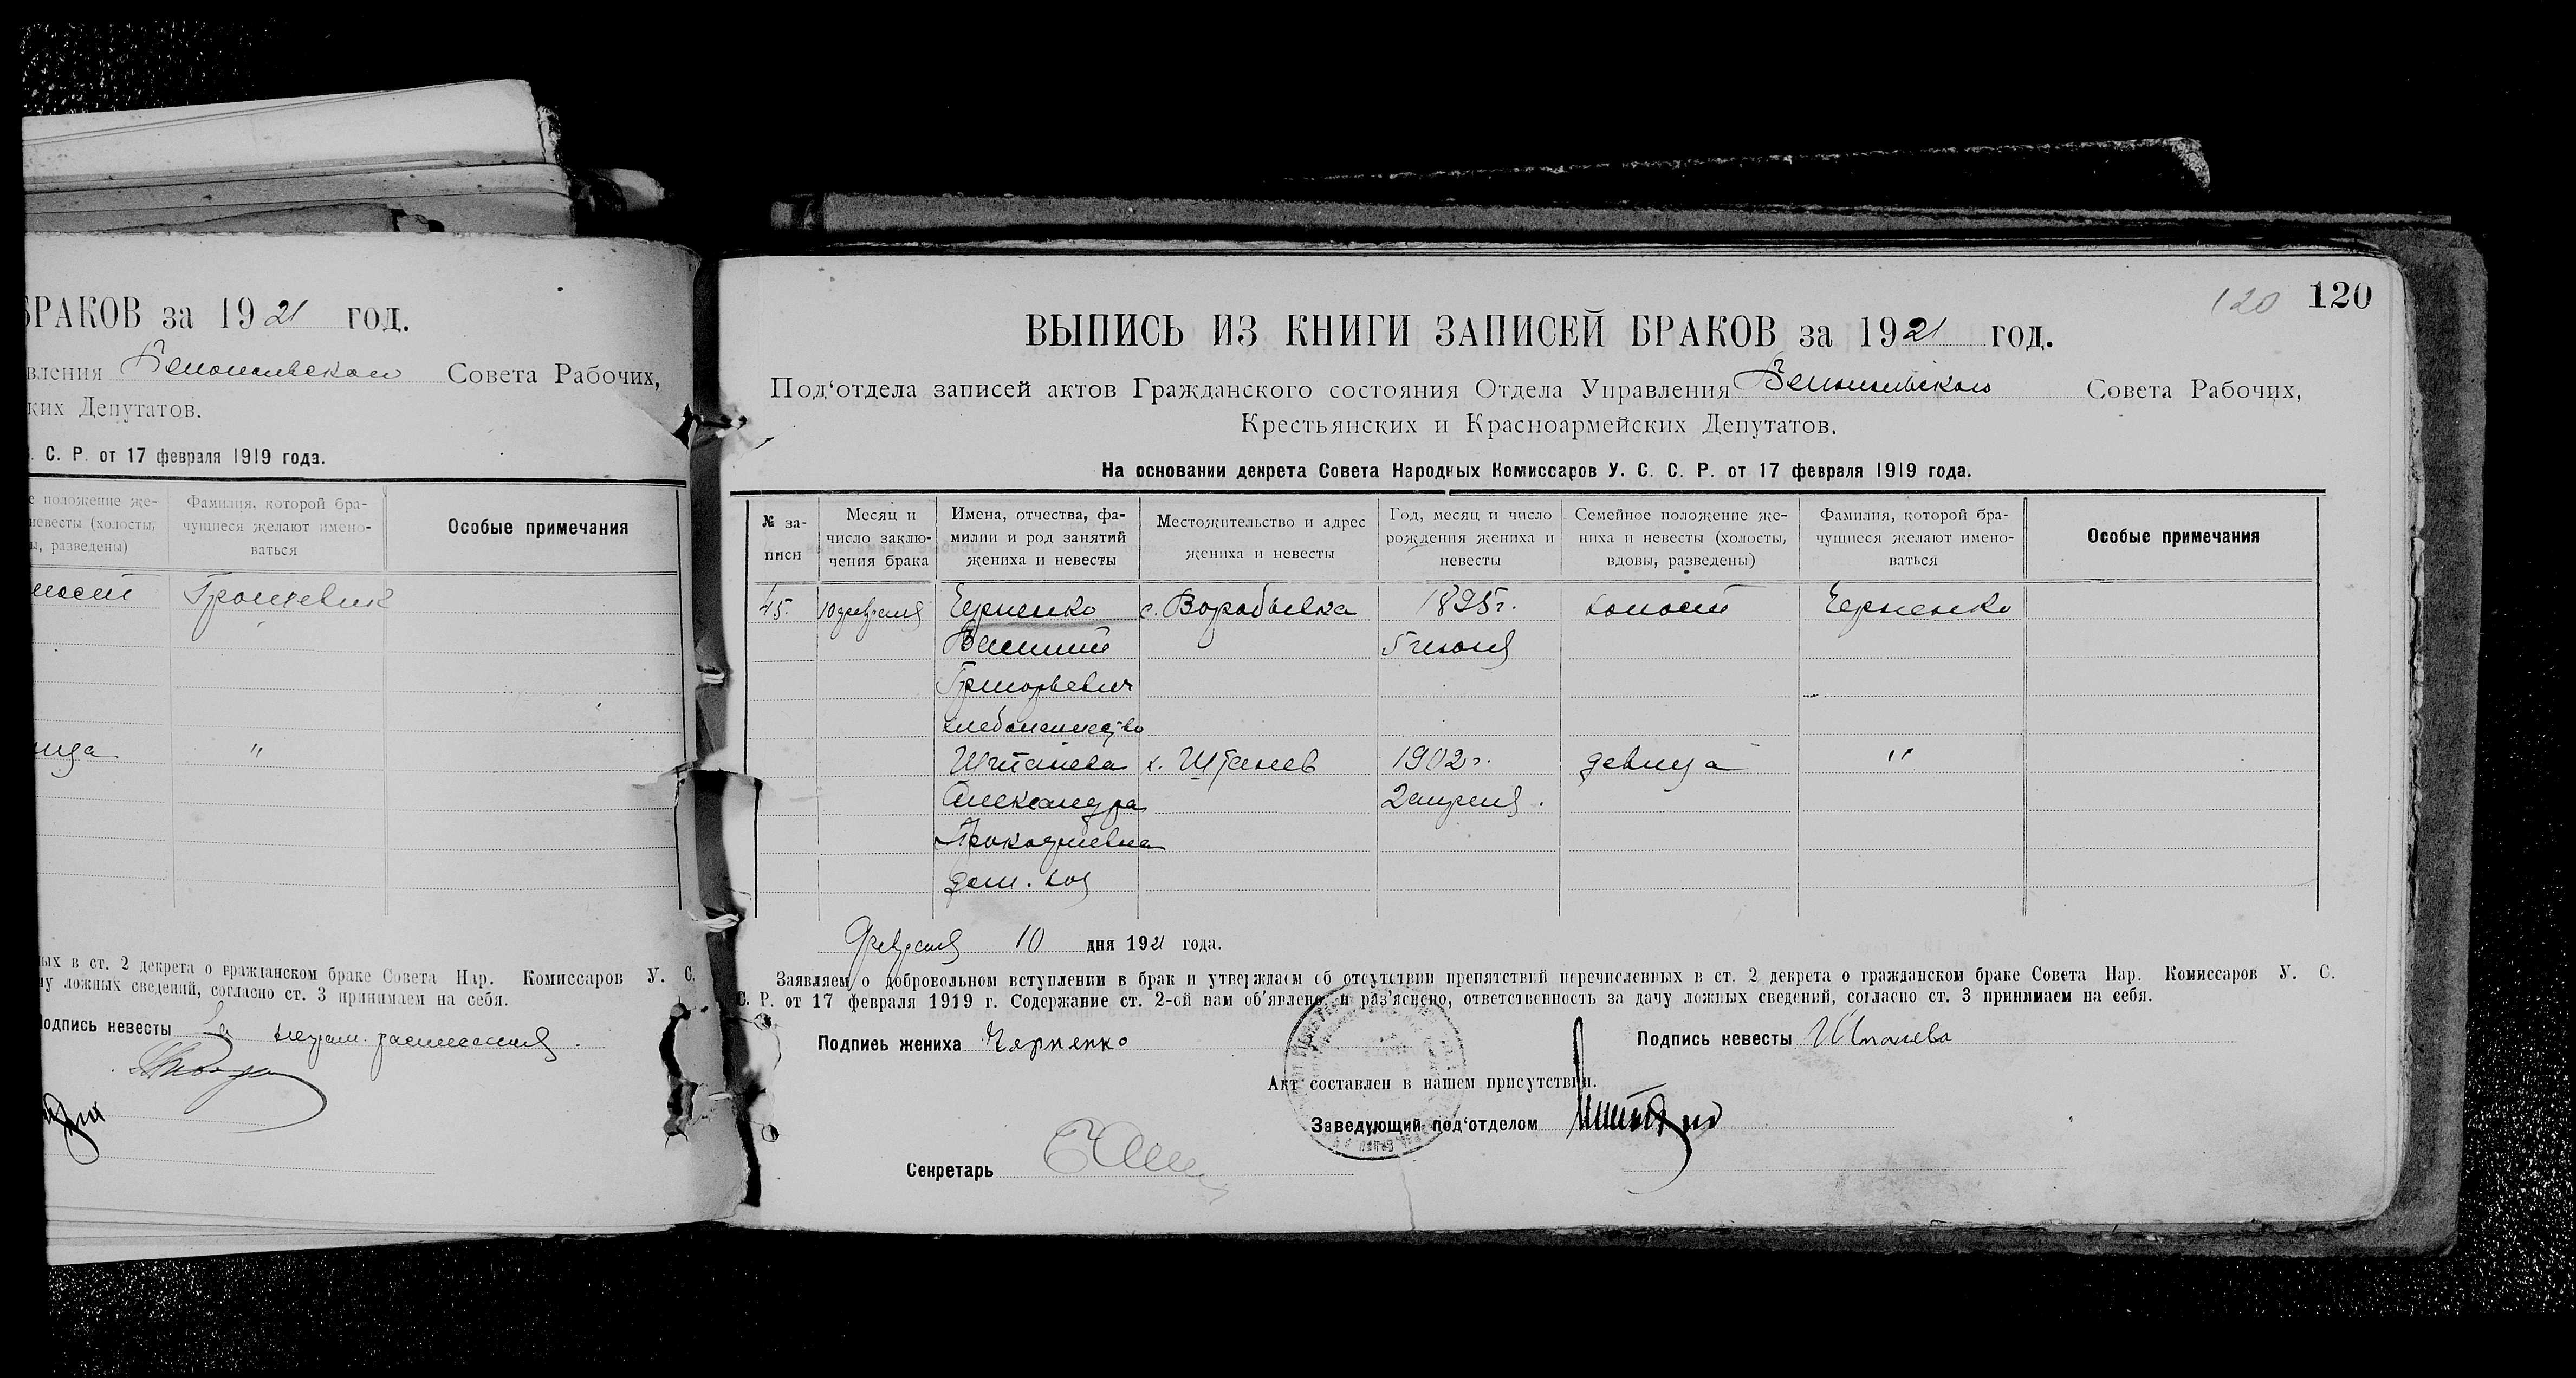 БРАКОВ за 1921 год.
вления Совета Рабочих,
ких Депутатов.
. С. Р. от 17 февраля 1919 года.
е положение же-
невесты (холосты,
ы, разведены)
Фамилия, которой бра-
чущиеся желают имено-
ваться
Особые примечания
лост
ица "
ых в ст. 2 декрета о гражданском браке Совета Нар. Комиссаров У. С.
чу ложных сведений, согласно ст. 3 принимаем на себя.
Подпись невесты За неграм.
120 120
ВЫПИСЬ ИЗ КНИГИ ЗАПИСЕЙ БРАКОВ за 1921 год.
Под'отдела записей актов Гражданского состояния Отдела Управления Совета Рабочих,
Крестьянских и Красноармейских Депутатов.
На основании декрета Совета Народных Комиссаров У. С. С. Р. от 17 февраля 1919 года.
№ за-
писи
Месяц и
число заклю-
чения брака
Имена, отчества, фа-
милии и род занятий
жениха и невесты
Местожительство и адрес
жениха и невесты
Год, месяц и число
рождения жениха и
невесты
Семейное положение же-
ниха и невесты (холосты,
вдовы, разведены)
Фамилия, которой бра-
чущиеся желают имено-
ваться
Особые примечания
45. 10 февраля Черненко с. Воробьевка 1895г. холост Черненко
5 июня
Григорьевич
хлебопашество
Штанева х. Штанев 1902 г. девица "
Александра 2 апреля.
Прокофиевна
дом. хоз
Февраля 10 дня 1921 года.
Заявляем о добровольном вступлении в брак и утверждаем об отсутствии препятствий перечисленных в ст. 2 декрета о гражданском браке Совета Нар. Комиссаров У. С.
С. Р. от 17 февраля 1919 г. Содержание ст. 2-ой нам об'явлено и раз'яснено, ответственность за дачу ложных сведений, согласно ст. 3 принимаем на себя.
Подпись жениха Черненко Подпись невесты Штанева
Акт составлен в нашем присутствии.
Заведующий под'отделом
Секретарь